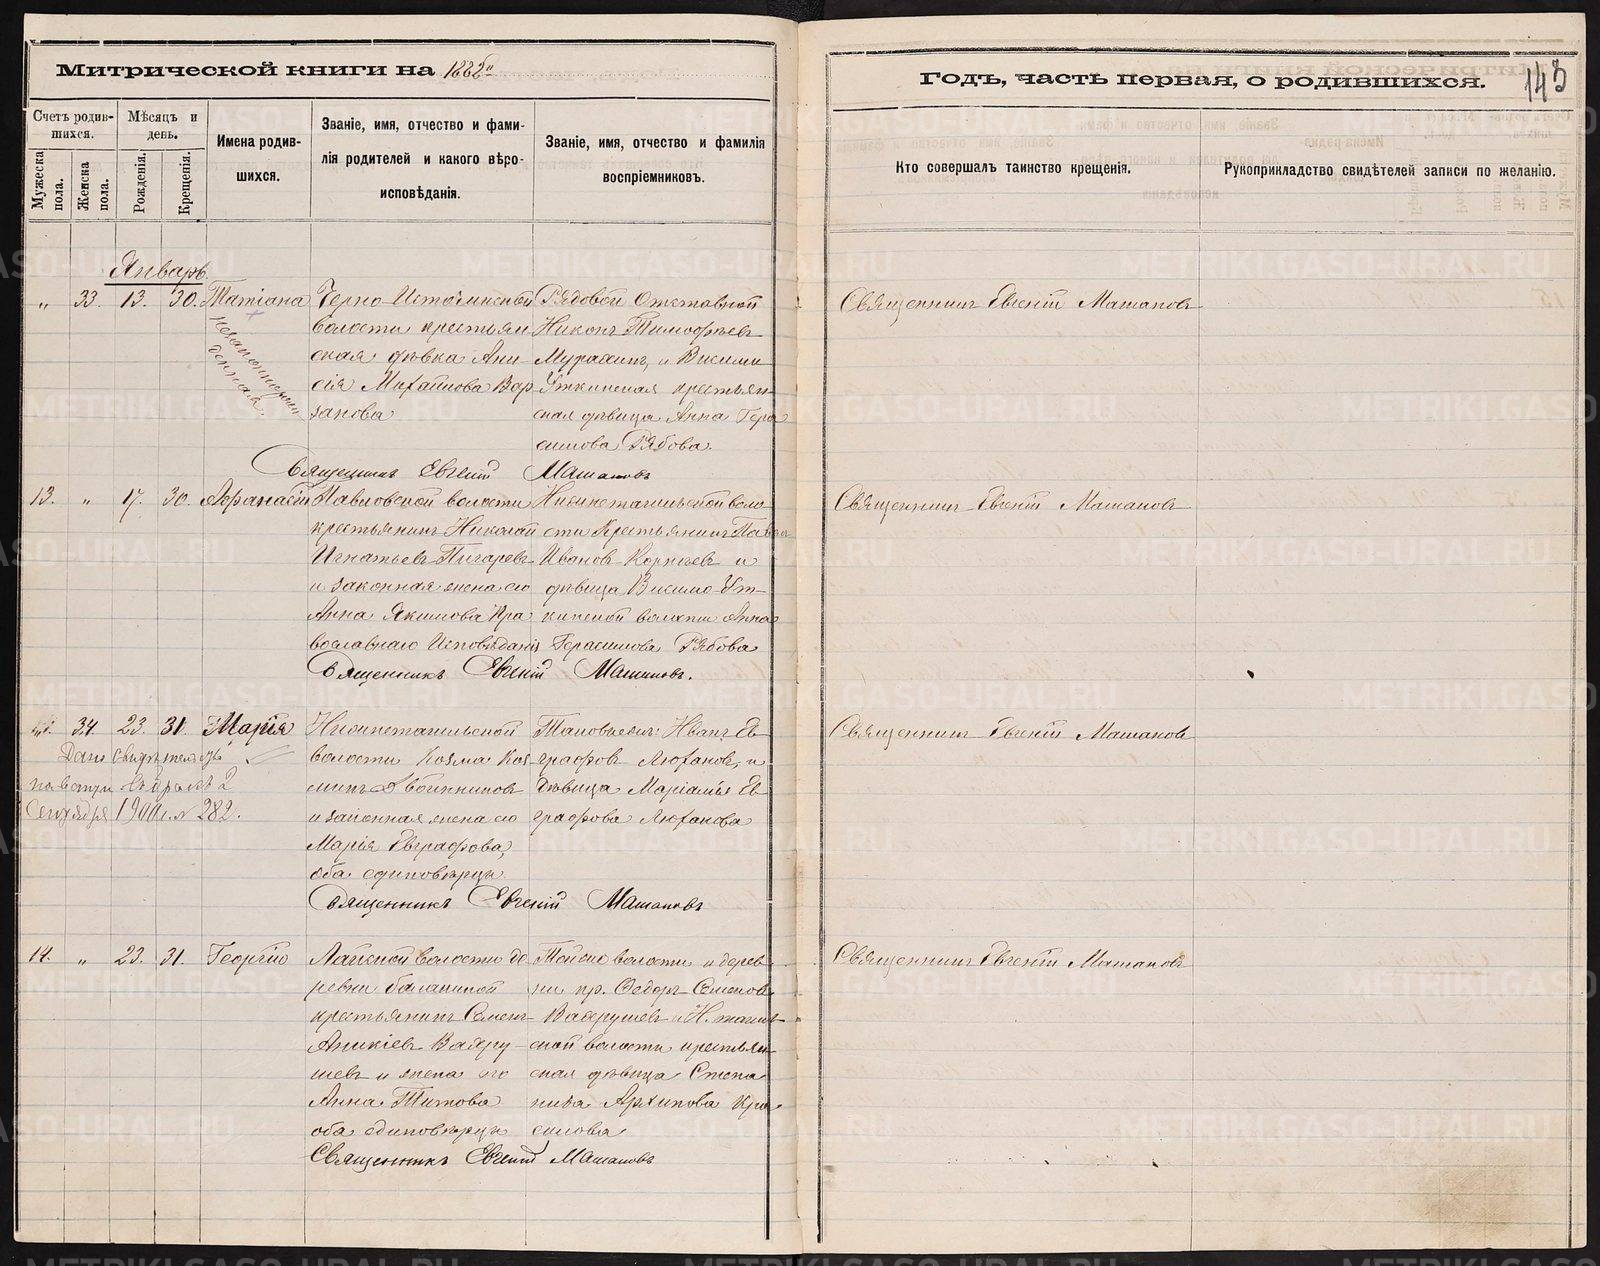 Митрической книги на 1882й
Годъ, часть первая, о родившихся.
143
Счетъ родив-
шихся.
Мужеска
пола.
Женска
пола.
Мѣсяцъ и
день.
Рожденія.
Крещенія.
Имена родив-
шихся.
Званіе, имя, отчество и фами-
лія родителей и какого вѣро-
исповѣданія.
Званіе, имя, отчество и фамилія
воспріемниковъ.
Кто совершалъ таинство крещенія.
Рукоприкладство свидѣтелей записи по желанію.
Январь
„ 33. 13. 30. Татіана
незаконнорож
денная
Черно-Источинской
волости крестьян
ская дѣвка Ани
сія Михайлова Вар
закова
Рядовой Отставной
Никонъ Тимофѣевъ
Мурахинъ, и Висимо
Уткинская крестьян
ская дѣвица Анна Гера
симова Рябова.
Священникъ Евгеній Машановъ
Священникъ Евгеній Машановъ
13. „ 17. 30. Афанасій
Павловской волости
крестьянинъ Николай
Игнатьевъ Пигаревъ
и законная жена его
Анна Якимова Пра
вославнаго Исповѣданія
Нижнетагильской воло
сти Крестьянинъ Павелъ
Ивановъ Корнѣевъ и
дѣвица Висимо-Ут-
кинской волости Анна
Герасимова Рябова
Священникъ Евгеній Машановъ.
Священникъ Евгеній Машановъ
„ 34. 23. 31. Марія
Дано свидѣтельство
на вступл. въ бракъ 2
Сентября 1900 г. № 282.
Нижнетагильской
волости Козма Коз
минъ Двойниковъ
и законная жена его
Марія Евграфова,
оба единовѣрцы
Иванъ Ев
графовъ Ляхановъ, и
дѣвица Ев
графова Ляханова
Священникъ Евгеній Машановъ
Священникъ Евгеній Машановъ
14. „ 23. 31. Георгій
Лайской волости де
ревни Балакиной
крестьянинъ Семенъ
Аникіевъ Вахру-
шевъ и жена его
Анна Титова
оба единовѣрцы
Той же волости и дерев
ни кр. Федоръ Семеновъ
Вахрушевъ и Н. тагиль
ской волости крестьян
ская дѣвица Степа
нида Архипова Кра
силова
Священникъ Евгеній Машановъ
Священникъ Евгеній Машановъ
METRIKI.GASO-URAL.RU